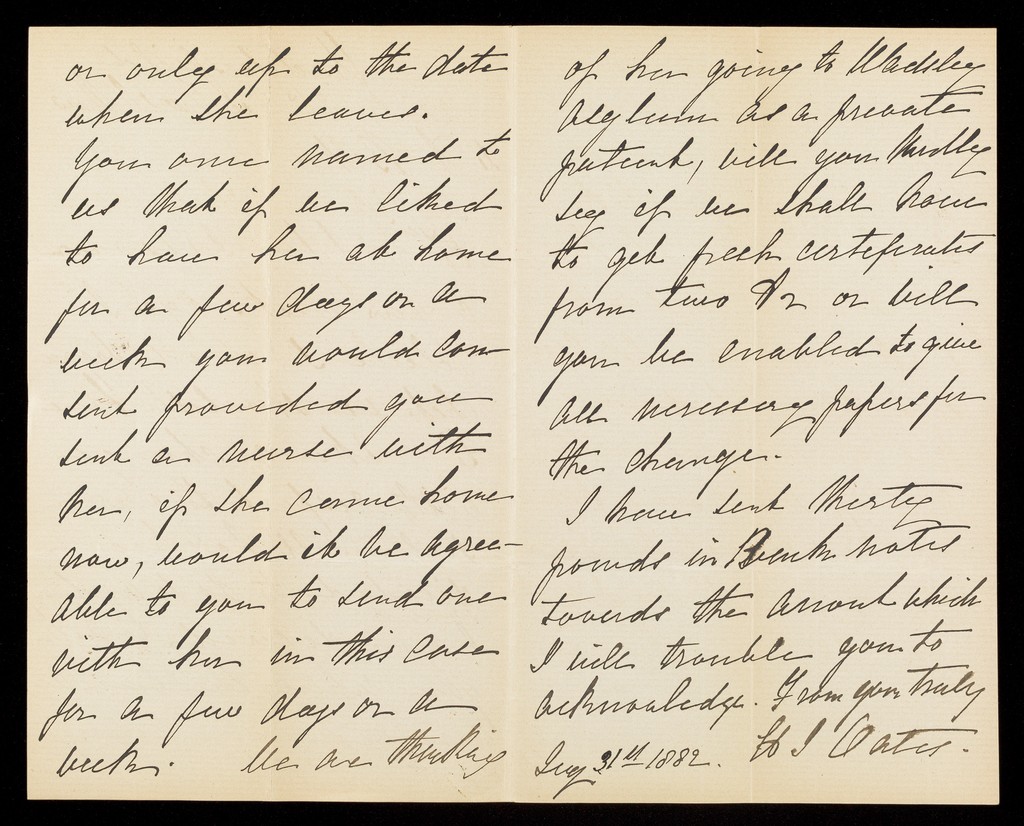 or only up to the date
when she leaves.
You once named to
us that if we liked
to have her at home
for a few days or a
week you would con
sent provided you
sent a nurse with
her, if she came home
now, would it be agree-
able to you to send one
with her in this case
for a few days or a
week. We are thinking
of her going to Wadsley
Asylum as a private
patient, will you kindly
say if we shall have
to get fresh certificates
from two Drs or will
you be enabled to give
all necessary papers for
the change.
I have sent thirty
pounds in Bank notes
towards the amount which
I will trouble you to
acknowledge. From yours truly
31st 1882. Oates.